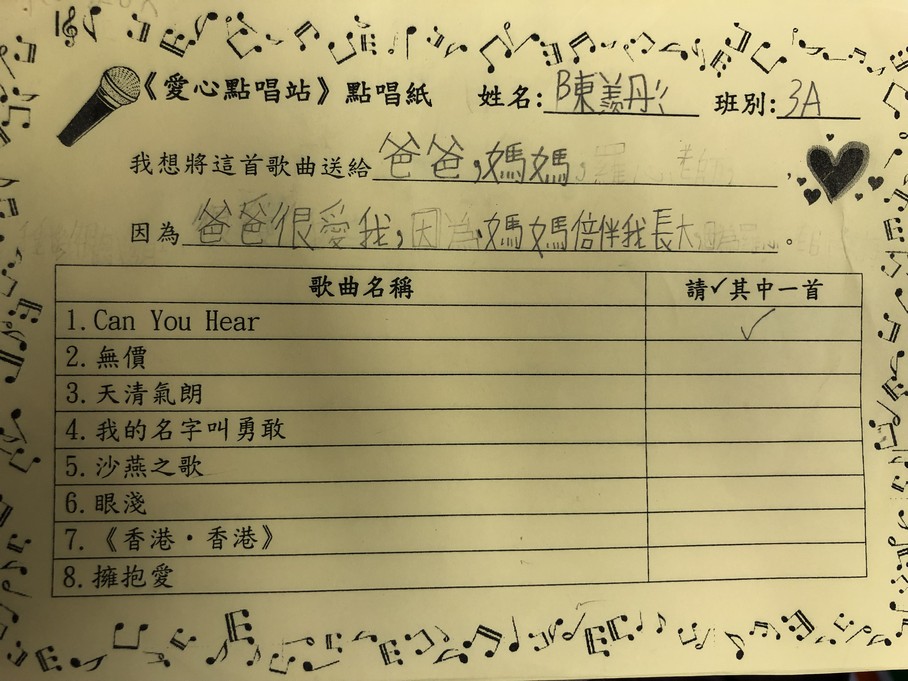 《愛心點唱站》點唱紙 姓名:陳羨彤 班別:3A
我想將這首歌曲送給爸爸,媽媽,
因為爸爸很愛我,因為媽媽倍伴我長大。
歌曲名稱 請✓其中一首
1.Can You Hear ✓
2.無價
3.天清氣朗
4.我的名字叫勇敢
5.沙燕之歌
6.眼淺
7.《香港·香港》
8.擁抱愛